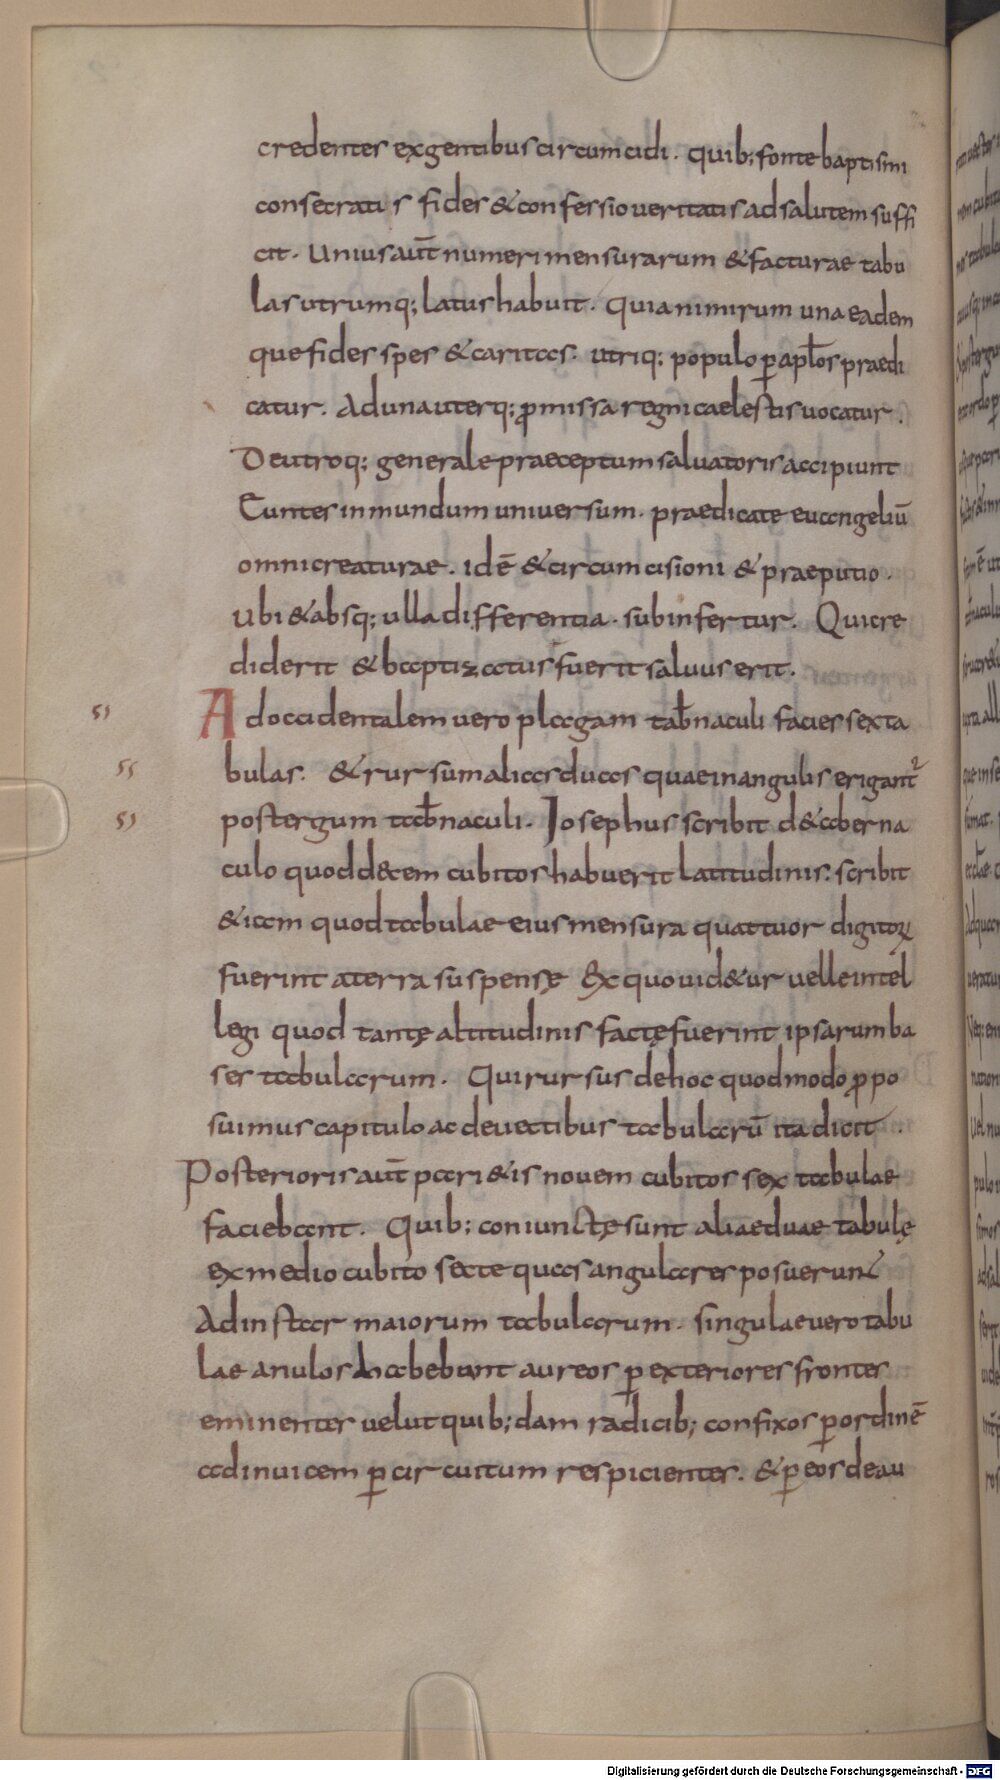 credentes ex gentibus circumcidi. quib; fonte baptismi
consecratis fides & confessio ueritatis ad salutem suffi
cit. Unius aut̄ numeri mensurarum & facturae tabu
las utrumq; latus habuit. Quia nimirum una eadem
que fides spes & caritas. utriq; populo ꝑ apłos praedi
catur. Ad una uterq; ꝓmissa regni caelestis uocatur.
De utroq; generale praeceptum saluatoris accipiunt
Euntes in mundum uniuersum. praedicate euangeliū
omni creaturae. id ē & circumcisioni & praeputio.
Ubi & absq; ulla differentia. subinfertur. Qui cre
diderit & baptizatus fuerit saluus erit.
Ad occidentalem uero plagam tab̄naculi facies sex ta
bulas. & rursum alias duas quae in angulis erigant᷑
post ergum tab̄naculi. Iosephus scribit d& aberna
culo quod decem cubitos habuerit latitudinis. scribit
& iam quod tabulae eius mensura quattuor digitoꝝ
fuerint a terra suspensę Ex quo uid&ur uelle intel
legi quod tantę altitudinis factę fuerint ipsarum ba
ses tabularum. Qui rursus de hoc quod modo ꝓpo
suimus capitulo ac de uectibus tabularū ita dicit.
Posterioris aut̄ pari&is nouem cubitos sex tabulae
faciebant. Quib; coniunctę sunt aliae duae tabulę
ex medio cubito secte quas angulares posuerunt
Ad instar maiorum tabularum. singulae uero tabu
lae anulos habebant aureos ꝑ exteriores frontes
eminenter uelut quib;dam radicib; confixos ꝑ ordinē
ad inuicem ꝑ circuitum respicientes. & ꝑ eos deau
Digitalisierung gefördert durch die Deutsche Forschungsgemeinschaft - DFG